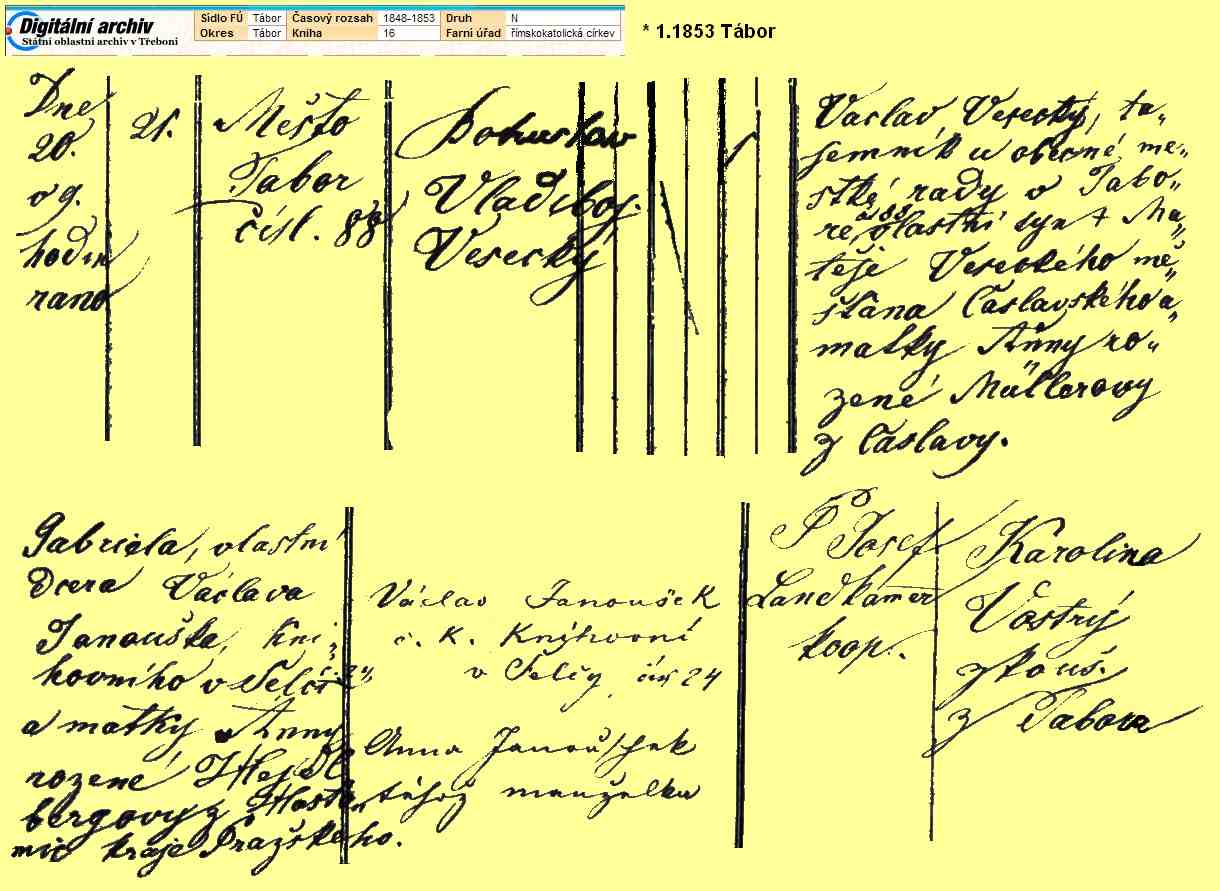 Digitální archiv
Státní oblastní archiv v Třeboni
Sídlo FÚ Tábor Časový rozsah 1848-1853 Druh N
Okres Tábor Kniha 16 Farní úřad římskokatolická církev
* 1.1853 Tábor
Dne
20.
o 9.
hodin
rano
21.
Město
Tabor
čísl. 88
Bohuslav
Vladiboj.
Vesecký
Vaclav Vesecký, ta„
jemník u obecné me„
stké rady v Tabo„
re, vlastní syn + Ma„
těje Veseckého mě„
šťana Časlavského a„
matky Anny ro„
zené Müllerovy
z Časlavy.
Gabriela, vlastní
dcera Václava
Janouška, kni„
hovního v Telči č. 24
a matky Anny
rozené
bergovy z
mic kraje Pražského.
Václav Janoušek
c. K. Knihovní
v Telčy čís 24
Anna Janouschek
téhož manželka
P Josef
Landkamer
koop.
Karolina
Vostrý
zkouš.
z Tabora